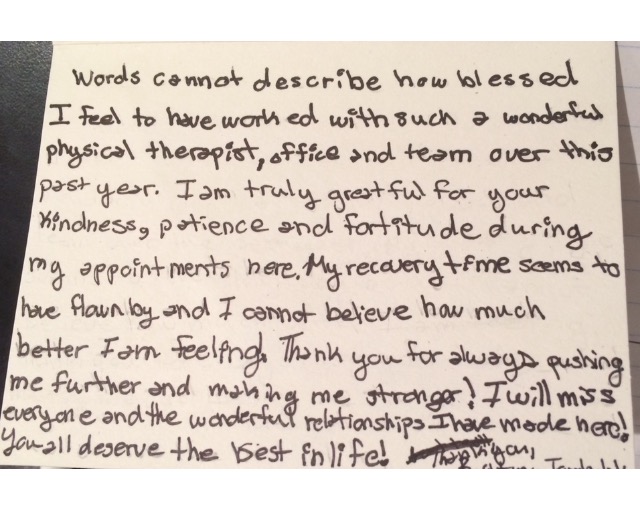 Words cannot describe how blessed
I feel to have worked with such a wonderful
physical therapist, office and team over this
past year. I am truly greatful for your
kindness, patience and fortitude during
my appointments here. My recovery time seems to
have flown by and I cannot believe how much
better I am feeling. Thank you for always pushing
me further and making me stronger! I will miss
everyone and the wonderful relationships I have made here!
You all deserve the best in life! Thank you,